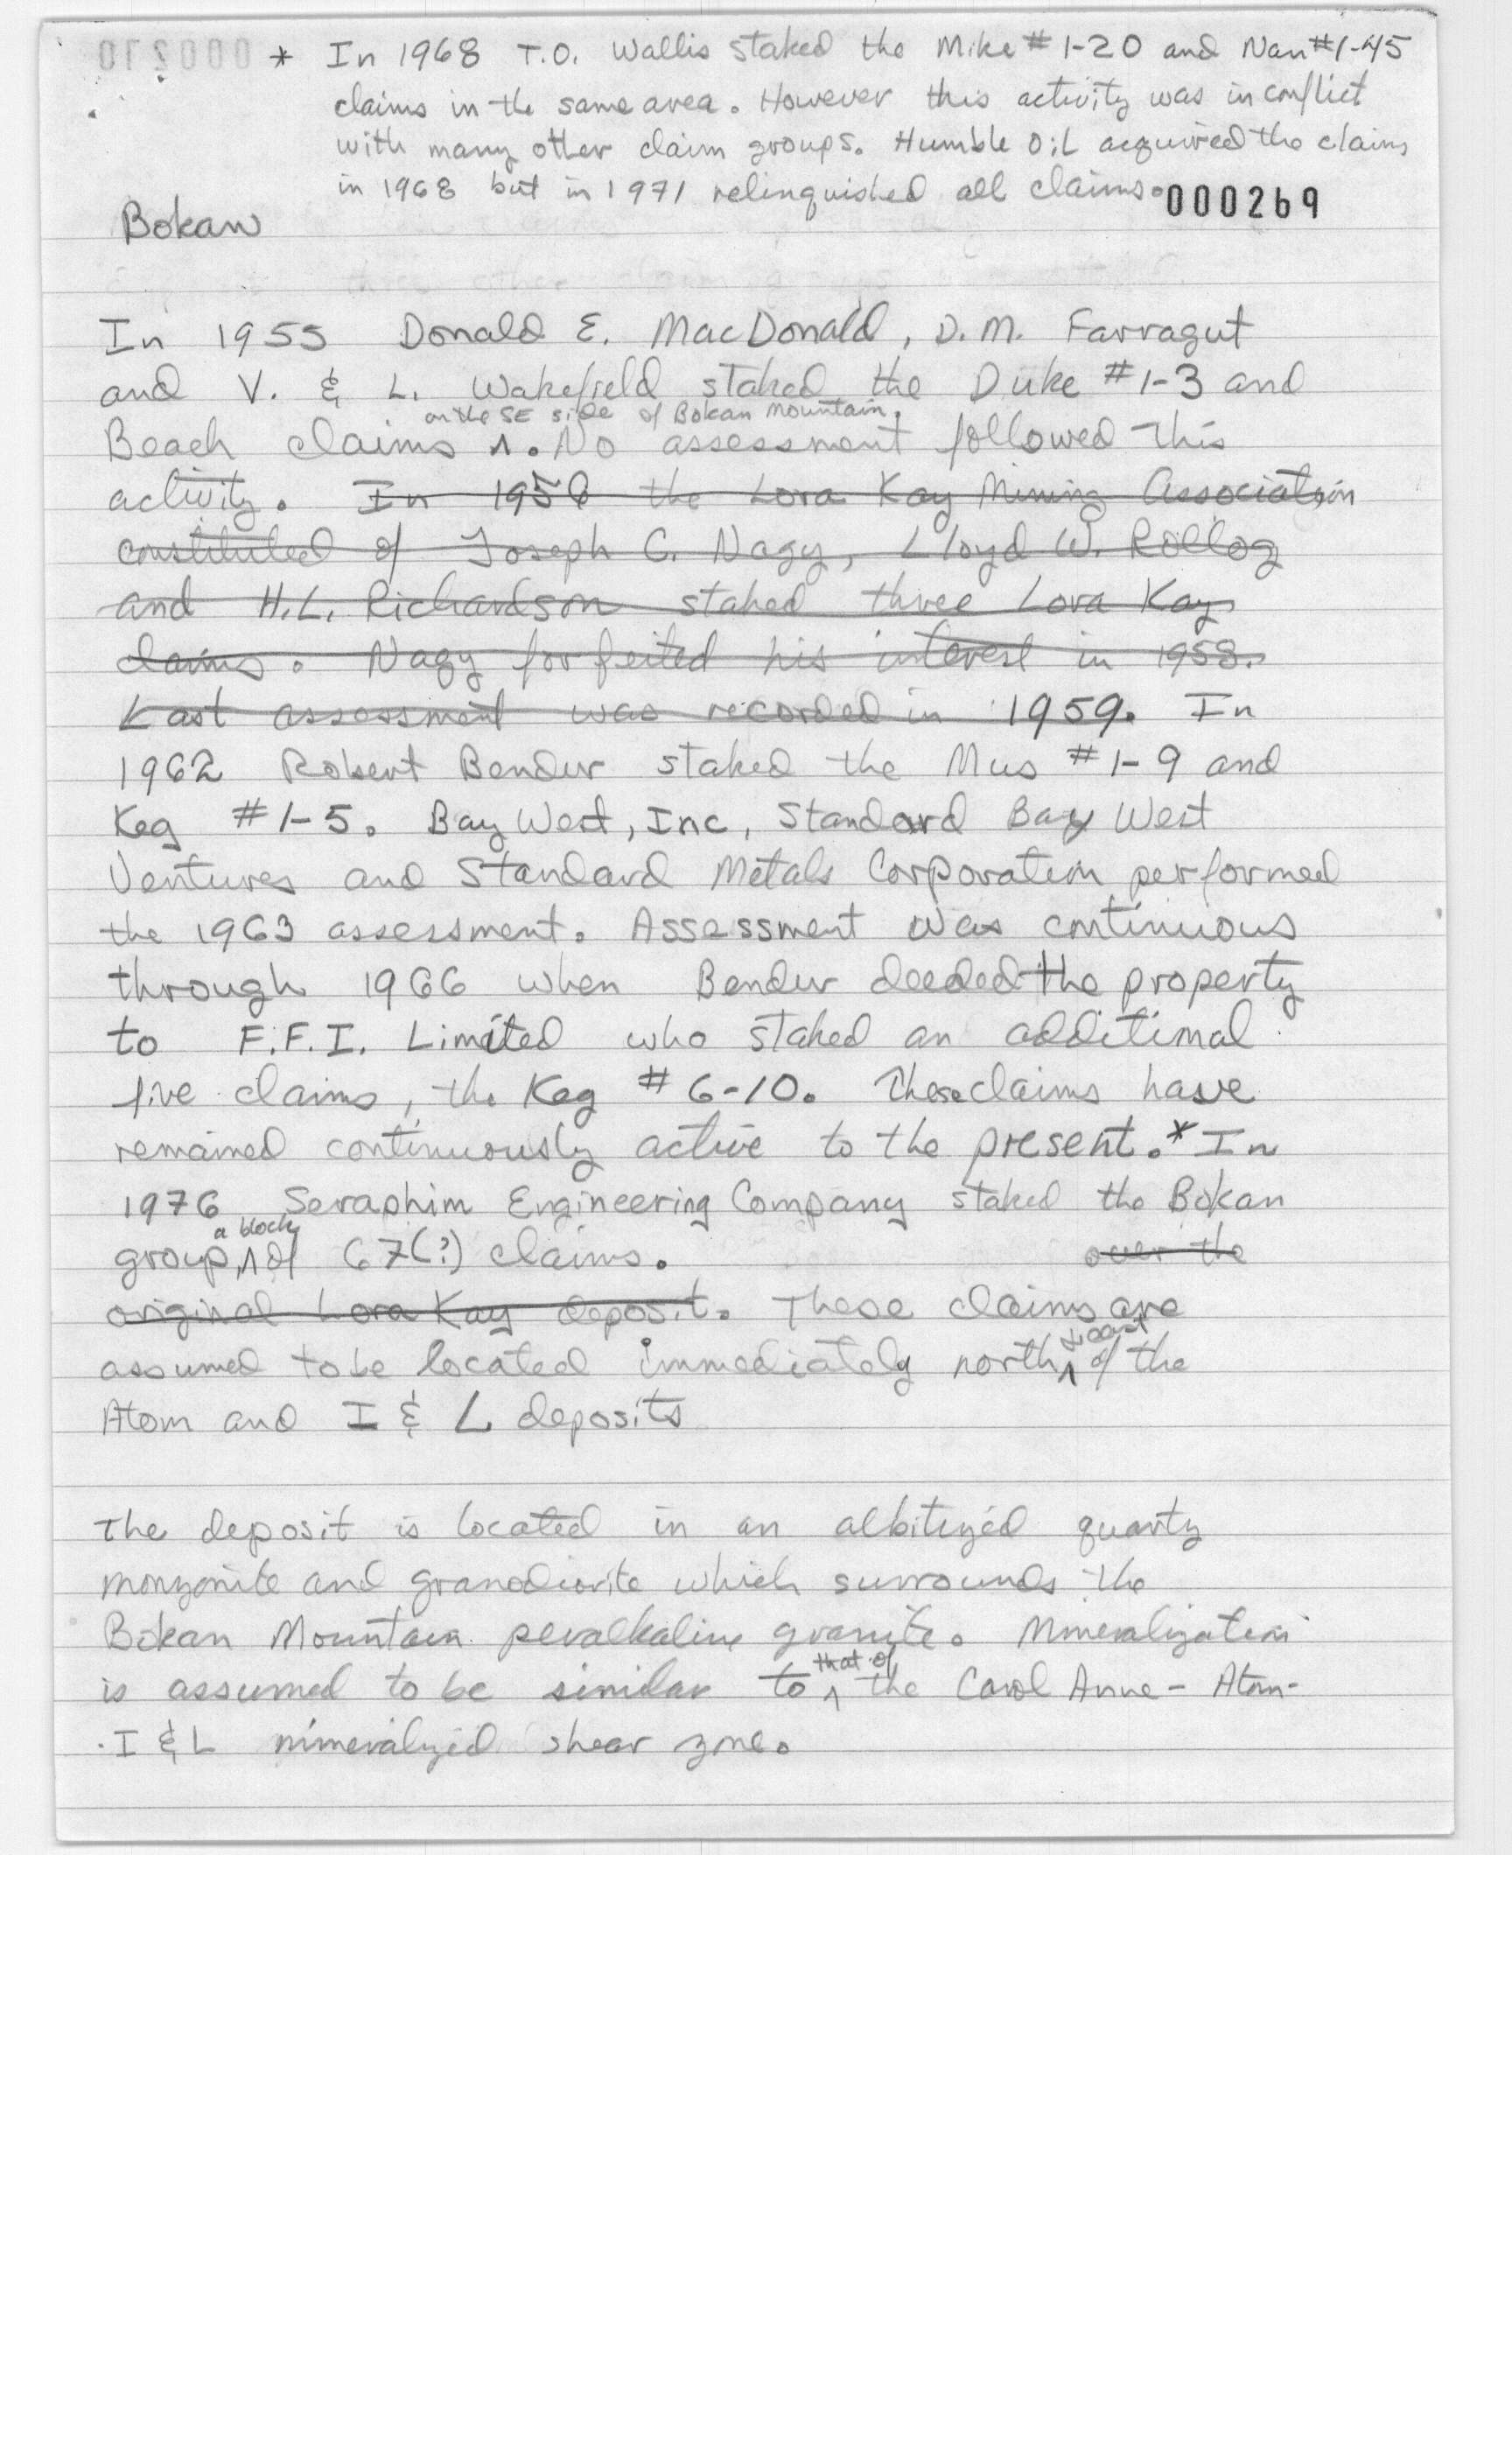 * In 1968 T.O. Wallis staked the Mike # 1-20 and Nan #1-45
claims in the same area. However this activity was in conflict
with many other claim groups. Humble Oil acquired the claims
in 1968 but in 1971 relinquished all claims.
000269
Bokan
In 1955 Donald E. MacDonald, D.M. Farragut
and V. & L. Wakefield staked the Duke #1-3 and
on the SE side of Bokan Mountain.
Beach claims ^. No assessment followed this
activity. In 1958 the Lora Kay Mining Association
constituted of Joseph C. Nagy, Lloyd W.
and H.L. Richardson staked three Lora Kay
claims. Nagy forfeited his interest in 1958.
Last assessment was recorded in 1959. In
1962 Robert Bender staked the Mus #1-9 and
Keg #1-5. Bay West, Inc, Standard Bay West
Ventures and Standard Metals Corporation performed
the 1963 assessment. Assessment was continuous
through 1966 when Bender deeded the property
to F.F.I. Limited who staked an additional
five claims, the Keg # 6-10. These claims have
remained continuously active to the present.* In
1976 Seraphim Engineering Company staked the Bokan
a block
group, ^ of 67(?) claims. over the
original Lora Kay deposit. These claims are
& east
assumed to be located immediately north ^ of the
Atom and I & L deposits
The deposit is located in an albitized quartz
monzonite and granodiorite which surrounds the
Bokan Mountain peralkaline granite. Mineralization
that of
is assumed to be similar to ^ the Carol Anne - Atom-
I & L mineralized shear zone.